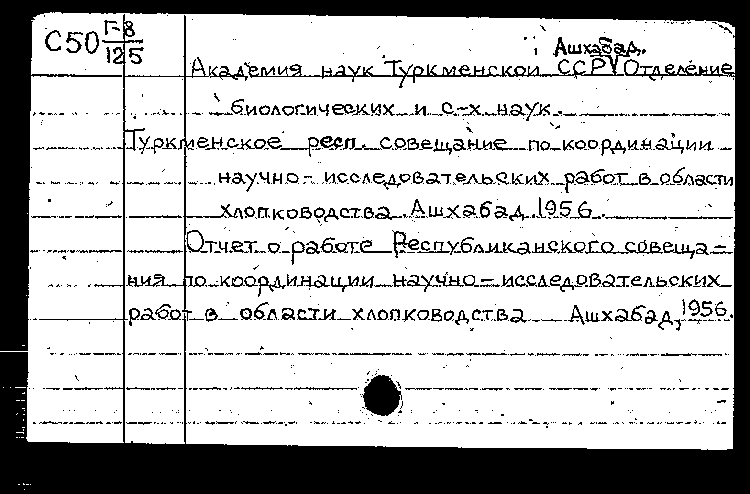 С50 Г-8/125
Академия наук Туркменской ССР Ашхабад. Отделение
биологических и с-х. наук.
Туркменское респ. совещание по координации
научно-исследовательских работ в области
хлопководства. Ашхабад. 1956.
Отчет о работе Республиканского совеща-
ния по координации научно-исследовательских
работ в области хлопководства Ашхабад, 1956.